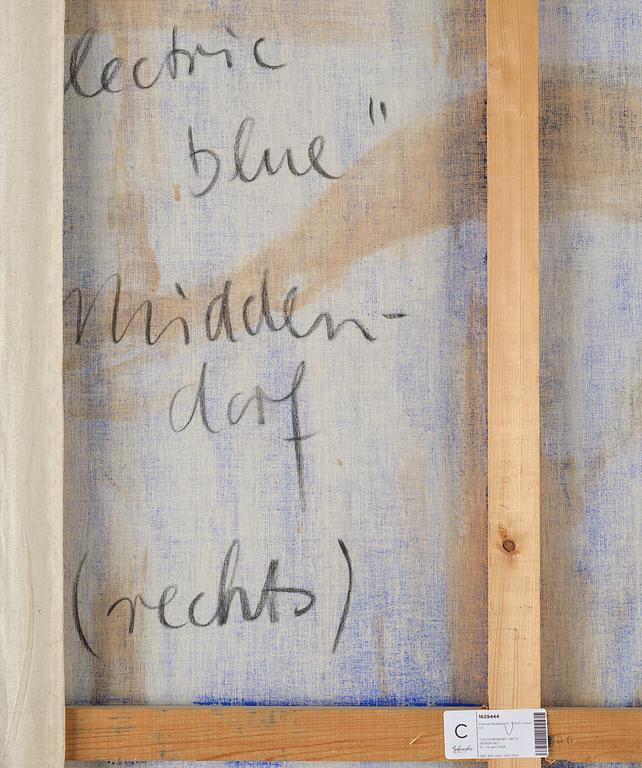 lectric
blue"
Midden-
dorf
(rechts)
C
1629444